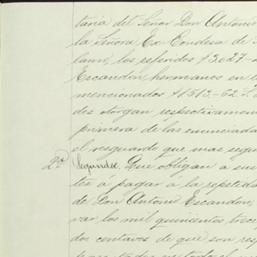 taria del Señor Don Antonio
la Señora Ex Condesa de
los referidos $2027-
Escandon hermanos en l
mencionados $1512-62
des otorgan respectivamen
primera de las enunciada
el resguardo que mas segu
2ª Segunda. Que obligan a sus
tes á pagar a la repetida
de Don Antonio Escandon,
var los mil quinientos trece
dos centavos de que son res